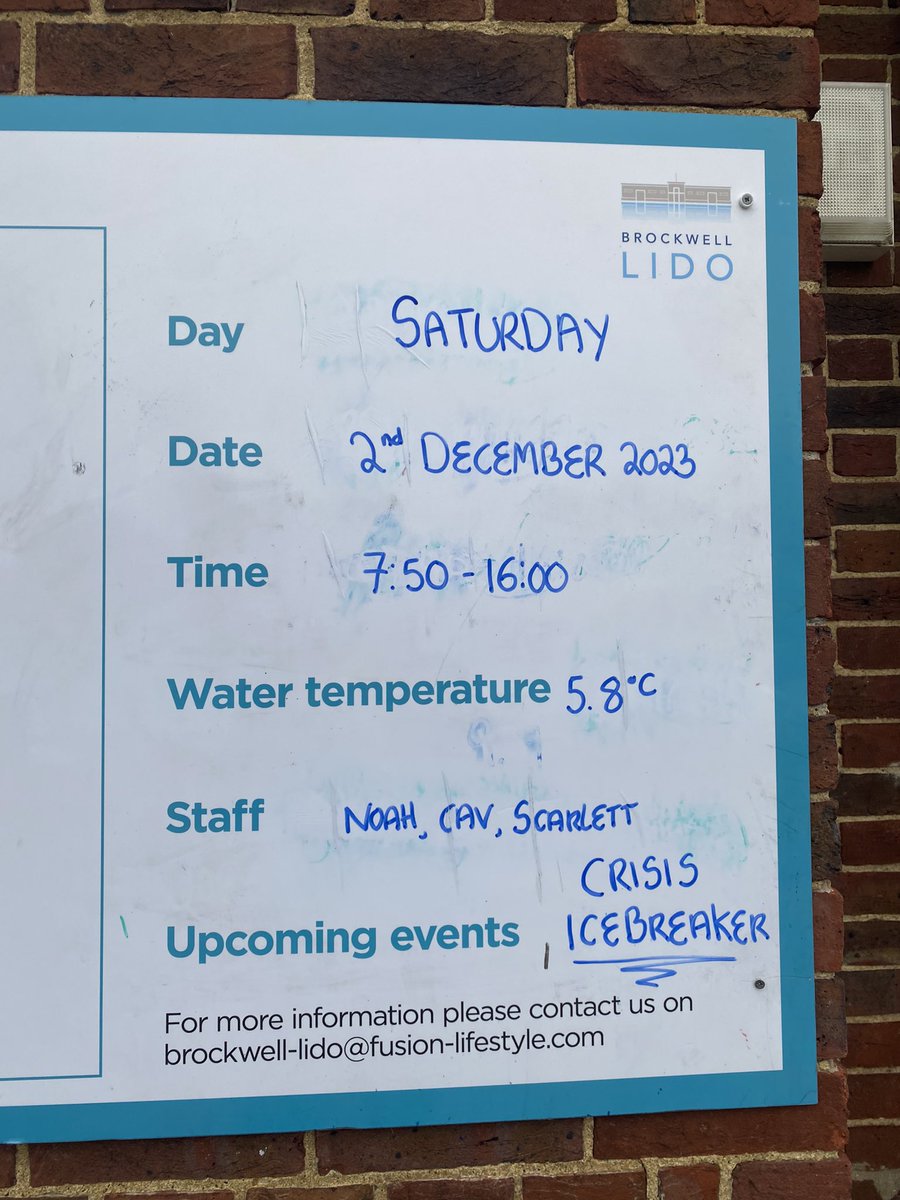 BROCKWELL
LIDO
Day SATURDAY
Date 2nd DECEMBER 2023
Time 7:50 - 16:00
Water temperature 5.8°C
Staff NOAH, CAV, SCARLETT
CRISIS
Upcoming events ICEBREAKER
For more information please contact us on
brockwell-lido@fusion-lifestyle.com